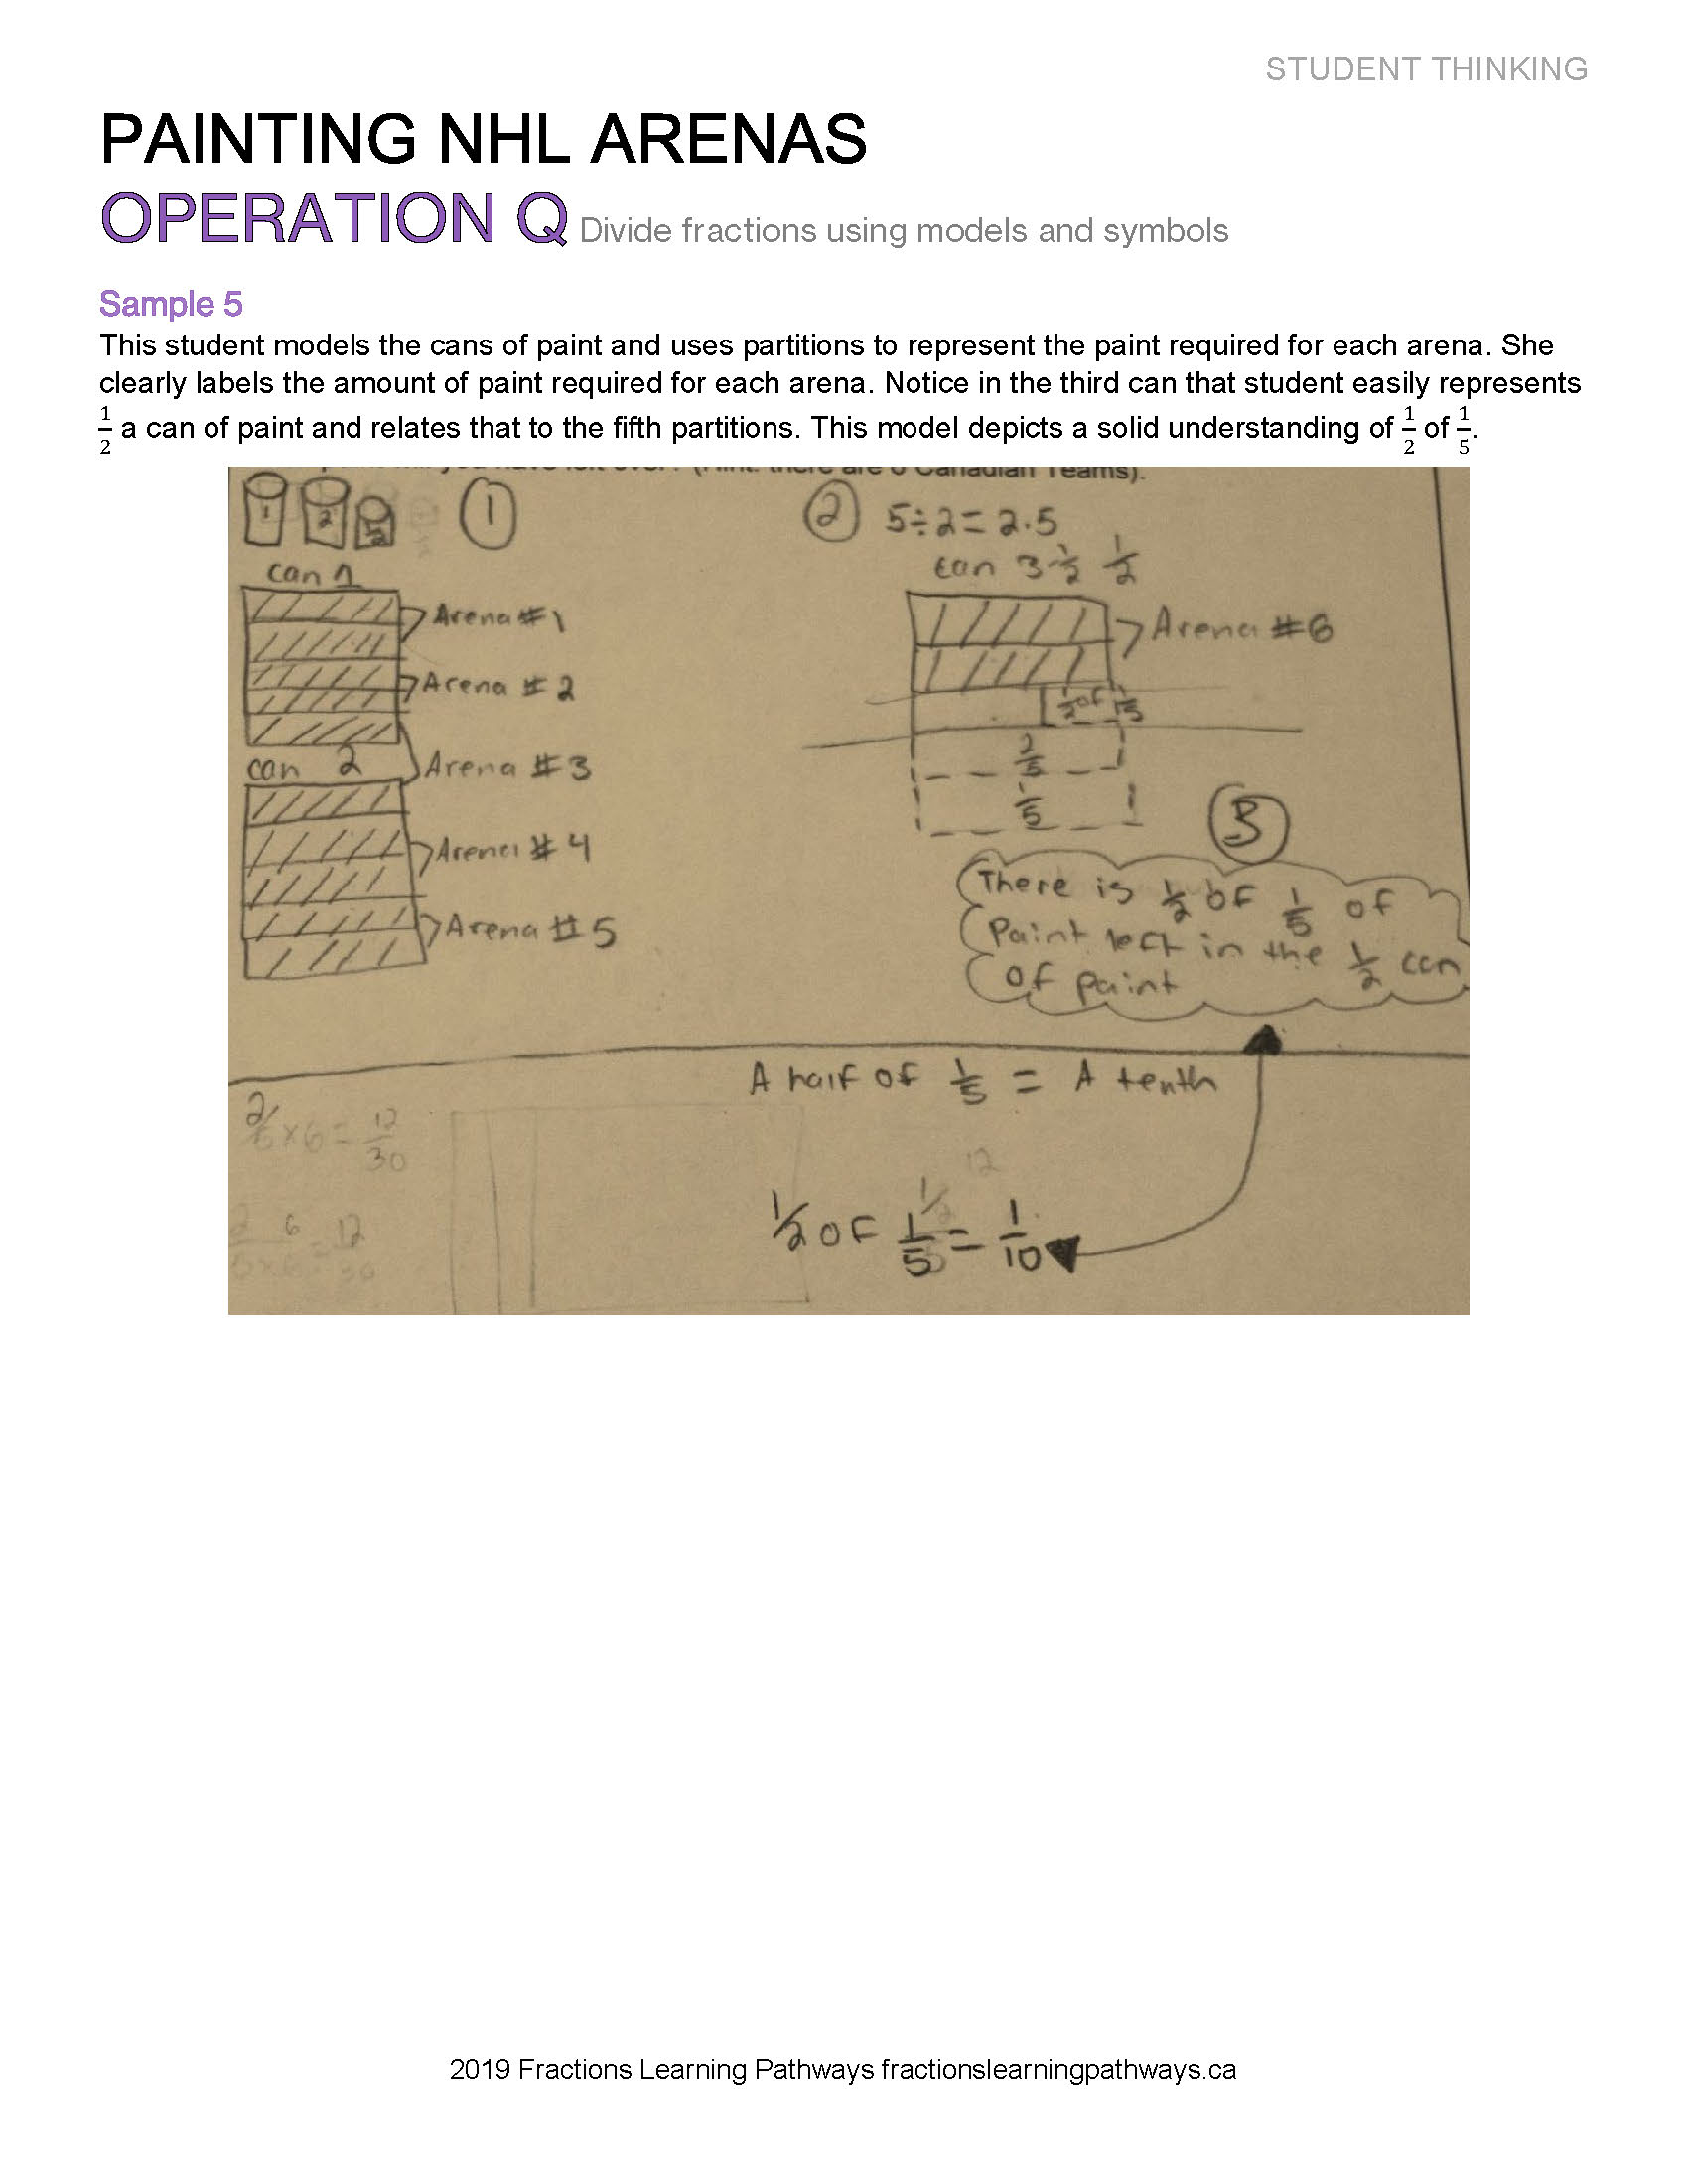 STUDENT THINKING
PAINTING NHL ARENAS
OPERATION Q Divide fractions using models and symbols
Sample 5
This student models the cans of paint and uses partitions to represent the paint required for each arena. She
clearly labels the amount of paint required for each arena. Notice in the third can that student easily represents
1/2 a can of paint and relates that to the fifth partitions. This model depicts a solid understanding of 1/2 of 1/5.
Canadian Teams).
1 2 1/2
①
can 1
Arena #1
Arena #2
can 2
Arena #3
Arena #4
Arena #5
②
5÷2=2.5
can 3 1/2 1/2
Arena #6
1/2 of 1/5
2/5
1/5
③
There is 1/2 of 1/5 of
Paint left in the 1/2 can
of paint
A half of 1/5 = A tenth
2/5 × 6 = 12/30
12
1/2 of 1/5 = 1/10
2019 Fractions Learning Pathways fractionslearningpathways.ca